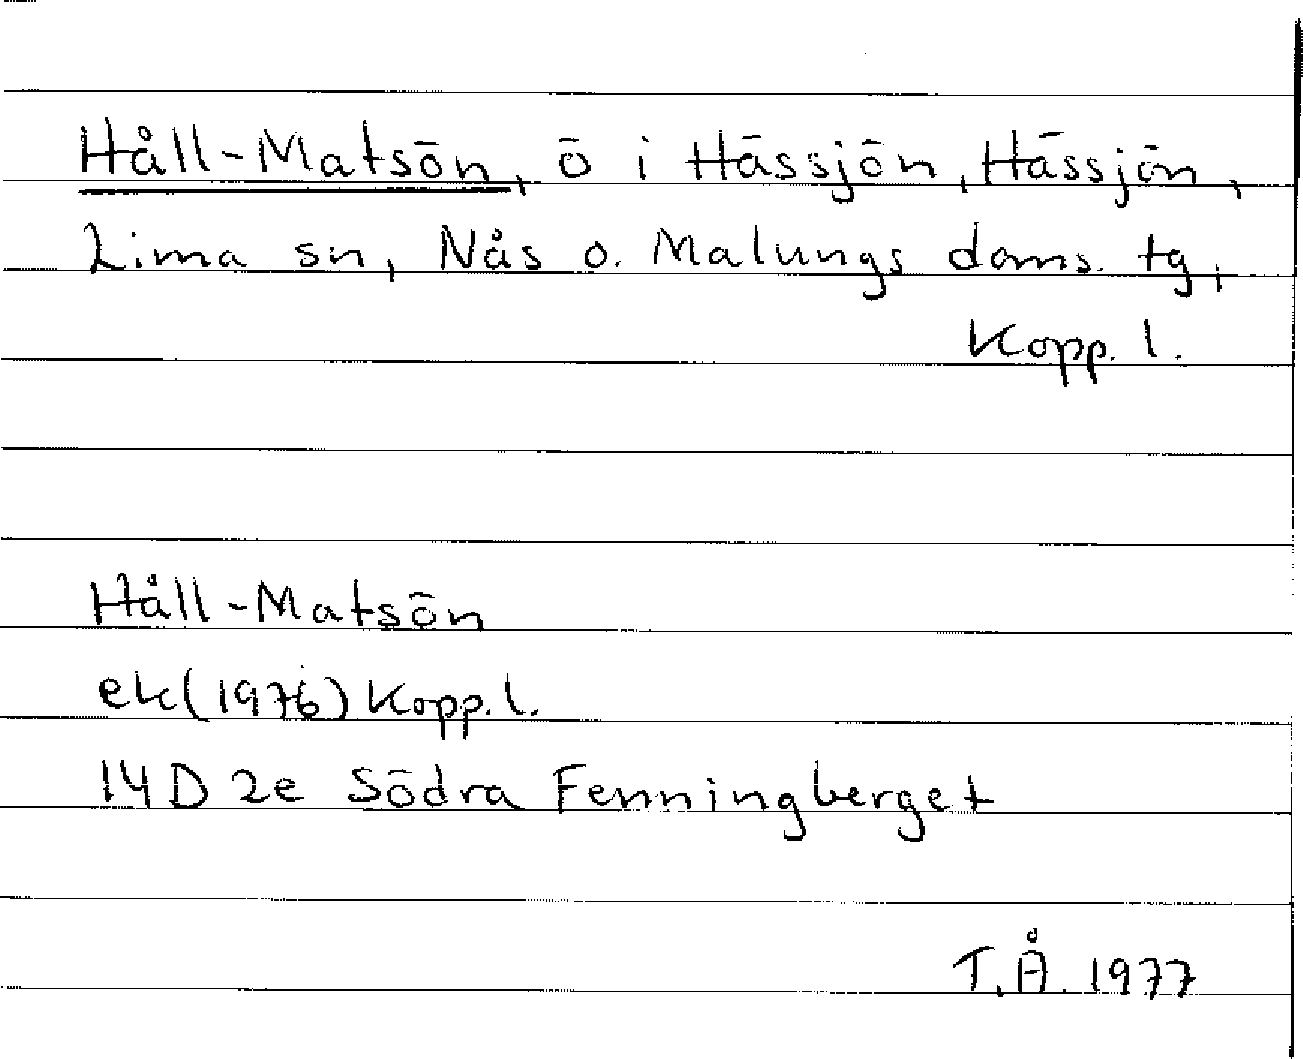 Håll-Matsön, ö i Hässjön, Hässjön,
Lima sn, Nås o. Malungs doms. tg,
Kopp. l.
Håll-Matsön
ek(1976) Kopp. l.
14D 2e Södra Fenningberget
T.Å. 1977